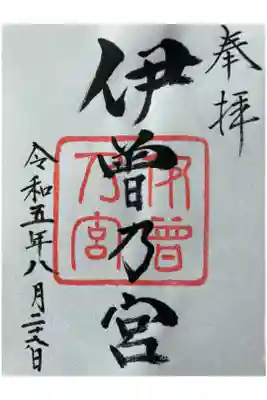 奉拝
伊曽乃宮
伊曽乃宮
令和五年八月二十八日